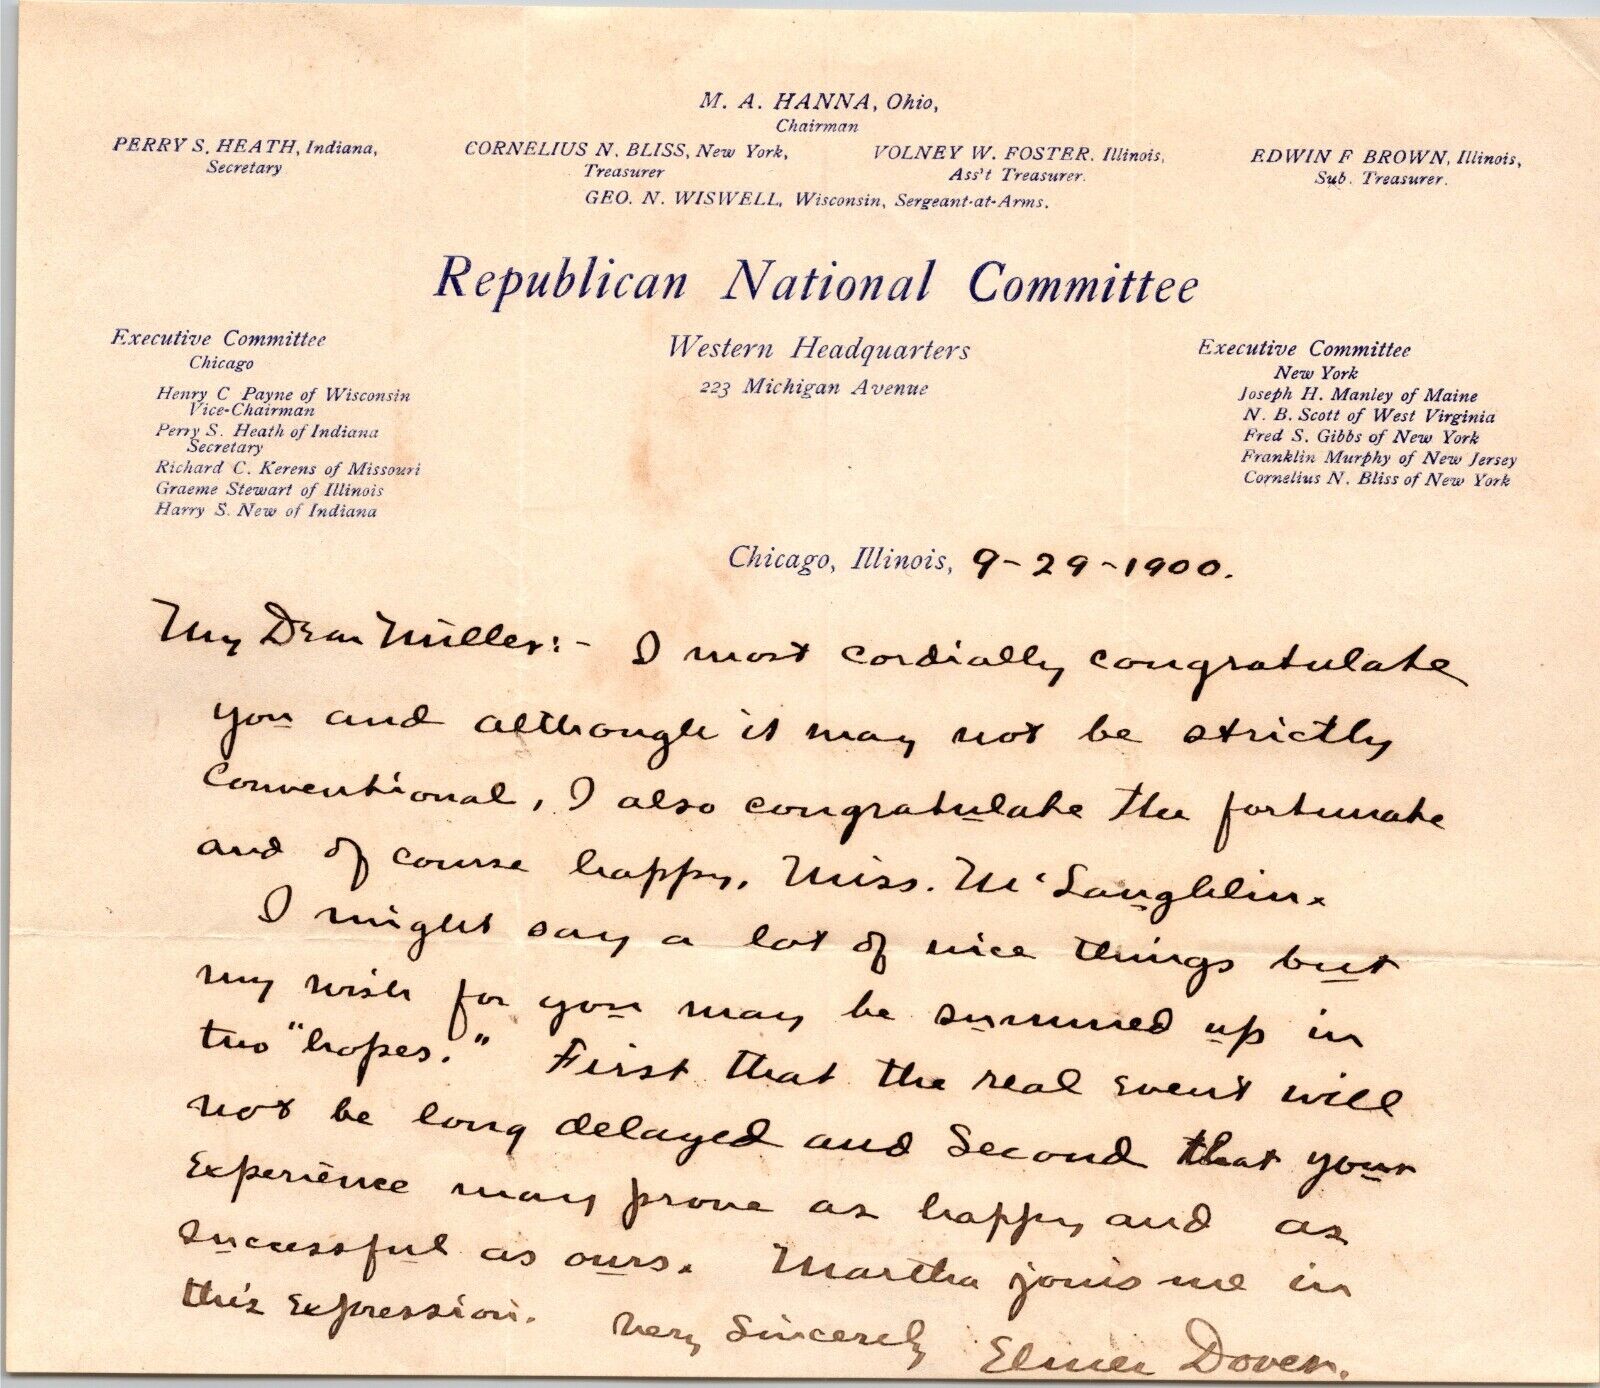 M. A. HANNA, Ohio,
Chairman
PERRY S. HEATH, Indiana,
Secretary
CORNELIUS N. BLISS, New York,
Treasurer
VOLNEY W. FOSTER, Illinois,
Ass't Treasurer.
EDWIN F BROWN, Illinois,
Sub. Treasurer.
GEO. N. WISWELL, Wisconsin, Sergeant-at-Arms.
Republican National Committee
Executive Committee
Chicago
Henry C Payne of Wisconsin
Vice-Chairman
Perry S. Heath of Indiana
Secretary
Richard C. Kerens of Missouri
Graeme Stewart of Illinois
Harry S. New of Indiana
Western Headquarters
223 Michigan Avenue
Executive Committee
New York
Joseph H. Manley of Maine
N. B. Scott of West Virginia
Fred S. Gibbs of New York
Franklin Murphy of New Jersey
Cornelius N. Bliss of New York
Chicago, Illinois, 9-29-1900.
My Dear Miller:- I most cordially congratulate
you and although it may not be strictly
conventional, I also congratulate the fortunate
and of course happy, Miss. McLaughlin.
I might say a lot of nice things but
my wish for you may be summed up in
two "hopes." First that the real event will
not be long delayed and second that your
experience may prove as happy and as
successful as ours. Martha joins me in
this expression. Very Sincerely Elmer Dover.